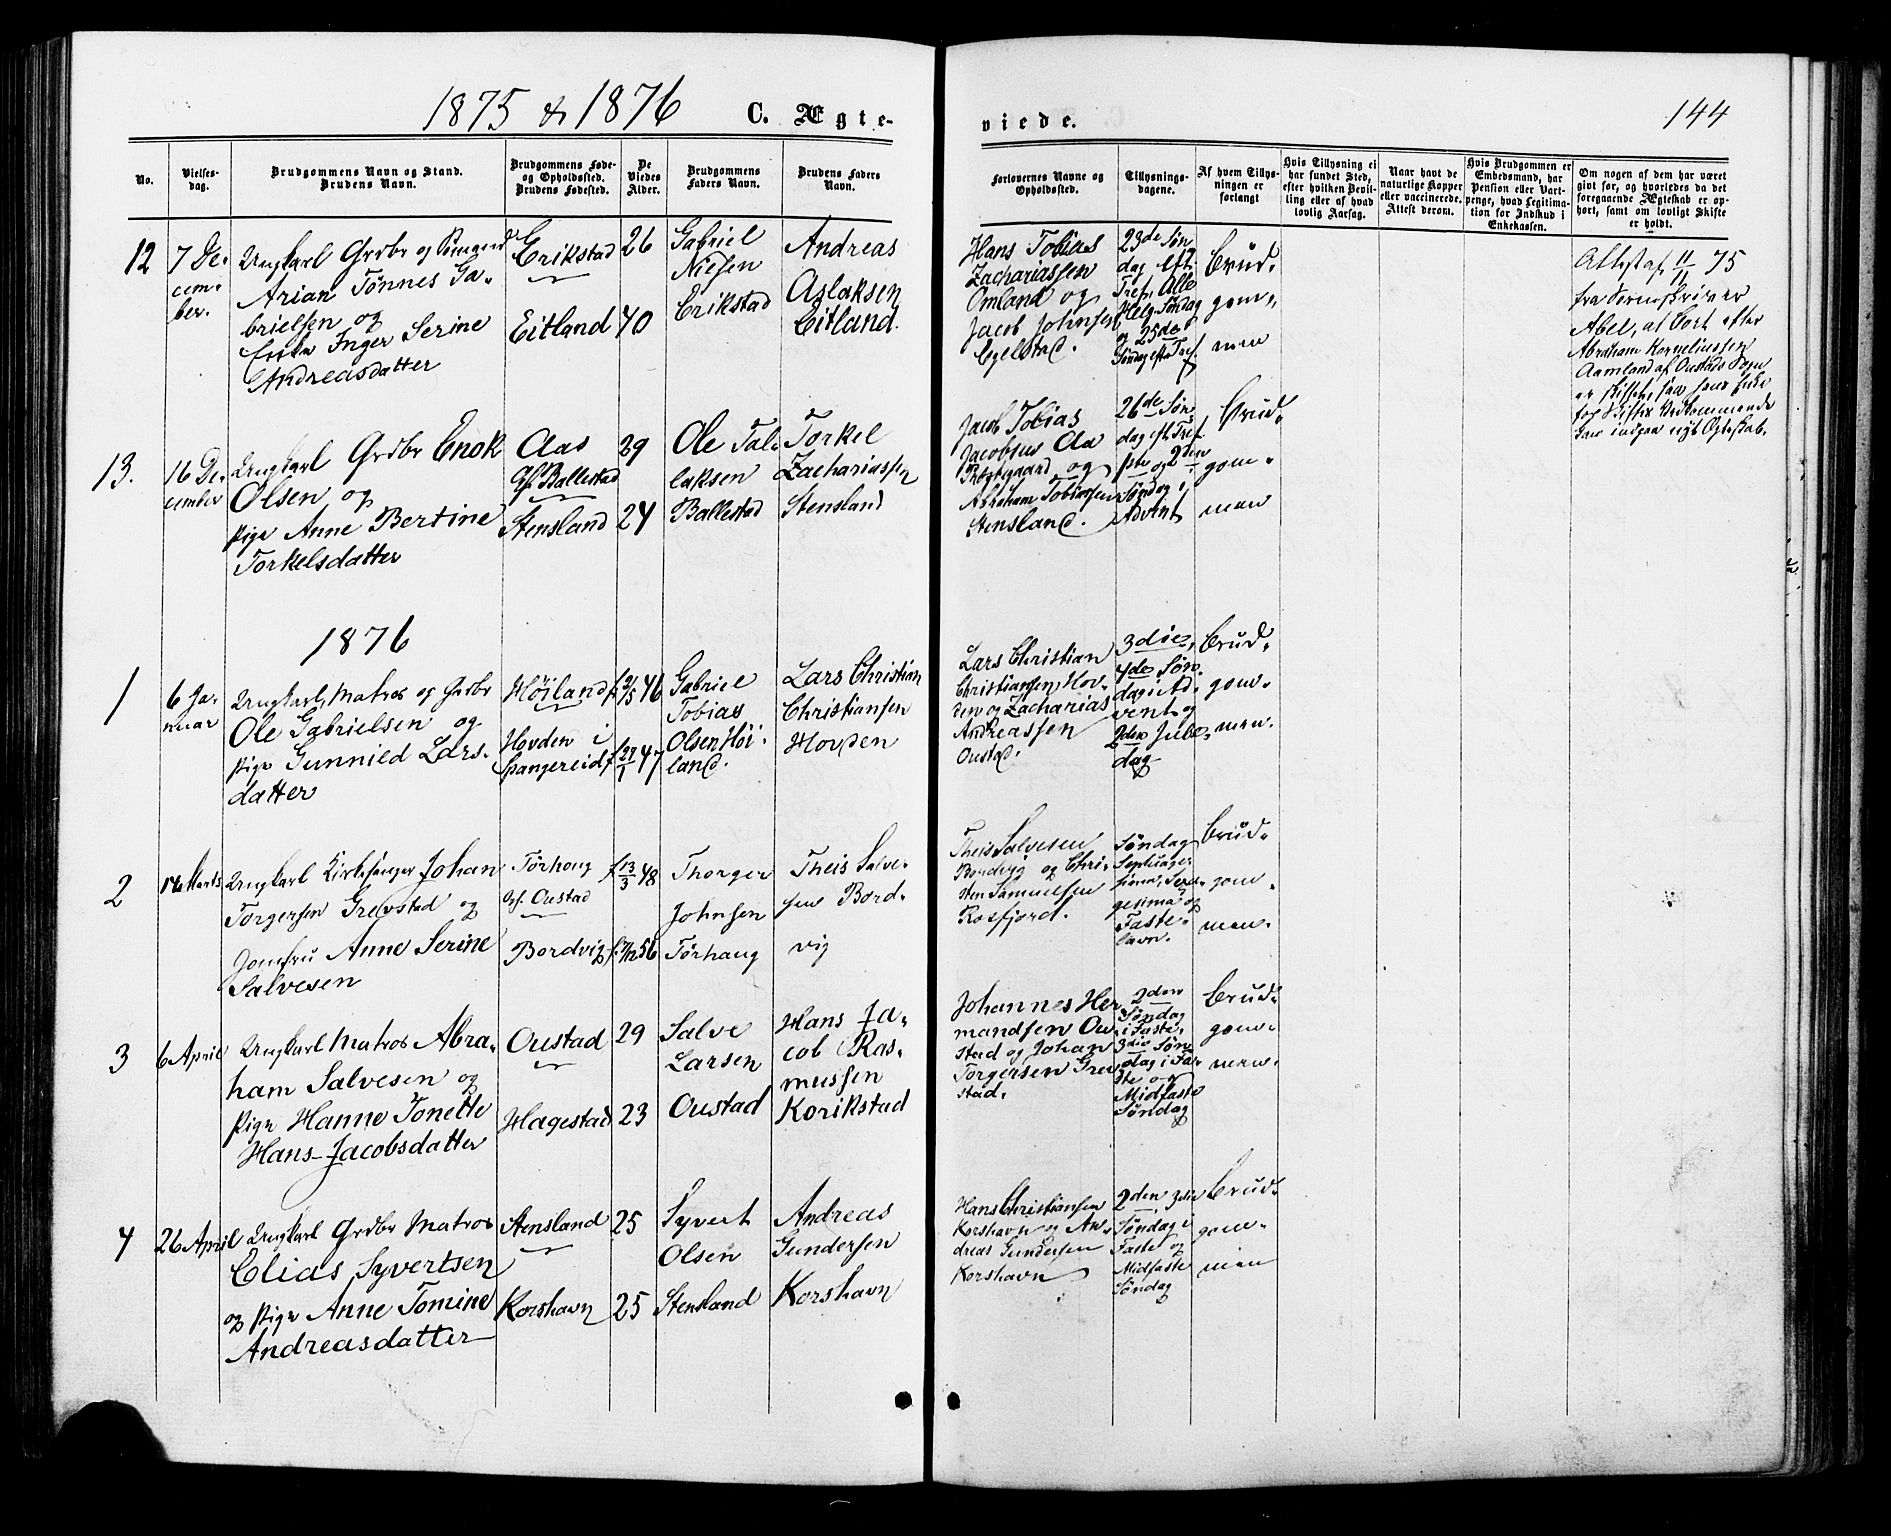 1875 & 1876 C. Ægte-
viede. 144
No.
Vielses-
dag.
Brudgommens Navn og Stand.
Brudens Navn.
Brudgommens Føde-
og Opholdssted.
Brudens Fødested.
De
Viedes
Alder.
Brudgommens
Faders Navn.
Brudens Faders
Navn.
Forlovernes Navne og
Opholdssted.
Tillysnings-
dagene.
Af hvem Tillys-
ningen er
forlangt
Hvis Tillysning ei
har fundet Sted,
efter hvilken Bevil-
ling eller af hvad
lovlig Aarsag.
Naar havt de
naturlige Kopper
eller vaccinerede.
Attest derom.
Hvis Brudgommen er
Embedsmand, har været
Pension eller Vart-
penge, hvad Legitima-
tion for Indskud i
Enkekassen.
Om nogen af dem har været
givt før, og hvorledes da det
foregaaende Ægteskab er op-
hørt, samt om lovligt Skifte
er holdt.
12
7 De-
cem-
ber.
Ungkarl Grdbr og
Arian Tønnes Ga-
brielsen og
Enke Inger Serine
Andreasdatter
Erikstad
Eitland
26
40
Gabriel
Nielsen
Erikstad
Andreas
Aslaksen
Eitland.
Hans Tobias
Zachariassen
Omland og
Jacob Johnsen
Egelstad.
23de Søn
dag eft.
Tref, Alle
Helg. Søndag
og 25de
Søndag efter Tref.
Brud-
gom-
men
Attest af 11/11 75
fra Sorenskriver
Abel, at Boet efter
Abraham Korneliussen
Aamland af Oustads Sogn
er skiftet, saa
for Skifte Vedkommende
kan indgaa nyt Egteskab.
13.
16 De-
cember
Ungkarl Grdbr Enok
Olsen og
Pige Anne Bertine
Torkelsdatter
Aas
Gf. Ballestad
Stensland
29
24
Ole Tal-
laksen
Ballestad
Torkel
Zachariassen
Stensland
Jacob Tobias
Jacobsus Aa
Prestegaard og
Abraham Tobiassen
Stensland.
26de Søn-
dag eft. Tref.
1ste og 2den
Søndag i
Advent
Brud-
gom-
men
1876
1
6 Ja-
nuar
Ungkarl, Matros og Grdbr
Ole Gabrielsen og
Pige Gunnild Lars-
datter
Höiland
Hovden i
Spangereid
f 2/5 46
f 27/1 47
Gabriel
Tobias
Olsen Höi-
land.
Lars Christian
Christiansen
Hovden
Lars Christian
Christiansen Hov-
den og Zacharias
Andreassen
Oustad.
3die,
4de Søn-
dag i Ad-
vent og
2den Jule-
dag
Brud-
gom-
men.
2
14 Marts
Ungkarl Kirkesanger Johan
Torgersen Grevstad og
Jomfru Anne Serine
Salvesen
Törhoug
gf. Oustad
Bordvig
f 13/3 48
f. 7/12 56
Thorger
Johnsen
Törhaug
Theis Salve-
sen Bord-
vig
Theis Salvesen
Bordvig og Chri-
sten Samuelsen
Rosfjord.
Søndag
Septuage-
sima, Sexa-
gesima og
Faste-
lavn.
Brud-
gom-
men.
3
6 April
Ungkarl Matros Abra-
ham Salvesen og
Pige Hanne Tonette
Hans-Jacobsdatter
Oustad
Hagestad
29
23
Salve
Larsen
Oustad
Hans Ja-
cob Ras-
mussen
Korikstad
Johannes Her
mandsen Ou-
stad og Johan
Torgersen Grev
stad.
2den
Søndag
i Faste-
3die Søn
dag i Fa-
ste og
Midfaste
Søndag
Brud-
gom-
men.
4
26 April
Ungkarl Grdbr Matros
Elias Syvertsen
og Pige Anne Tomine
Andreasdatter
Stensland
Korshavn
25
25
Syvert
Olsen
Stensland
Andreas
Gundersen
Korshavn
Hans Christiansen
Korshavn og An-
dreas Gundersen
Korshavn
2den, 3die
Søndag i
Faste og
Midfaste
Søndag
Brud-
gom-
men